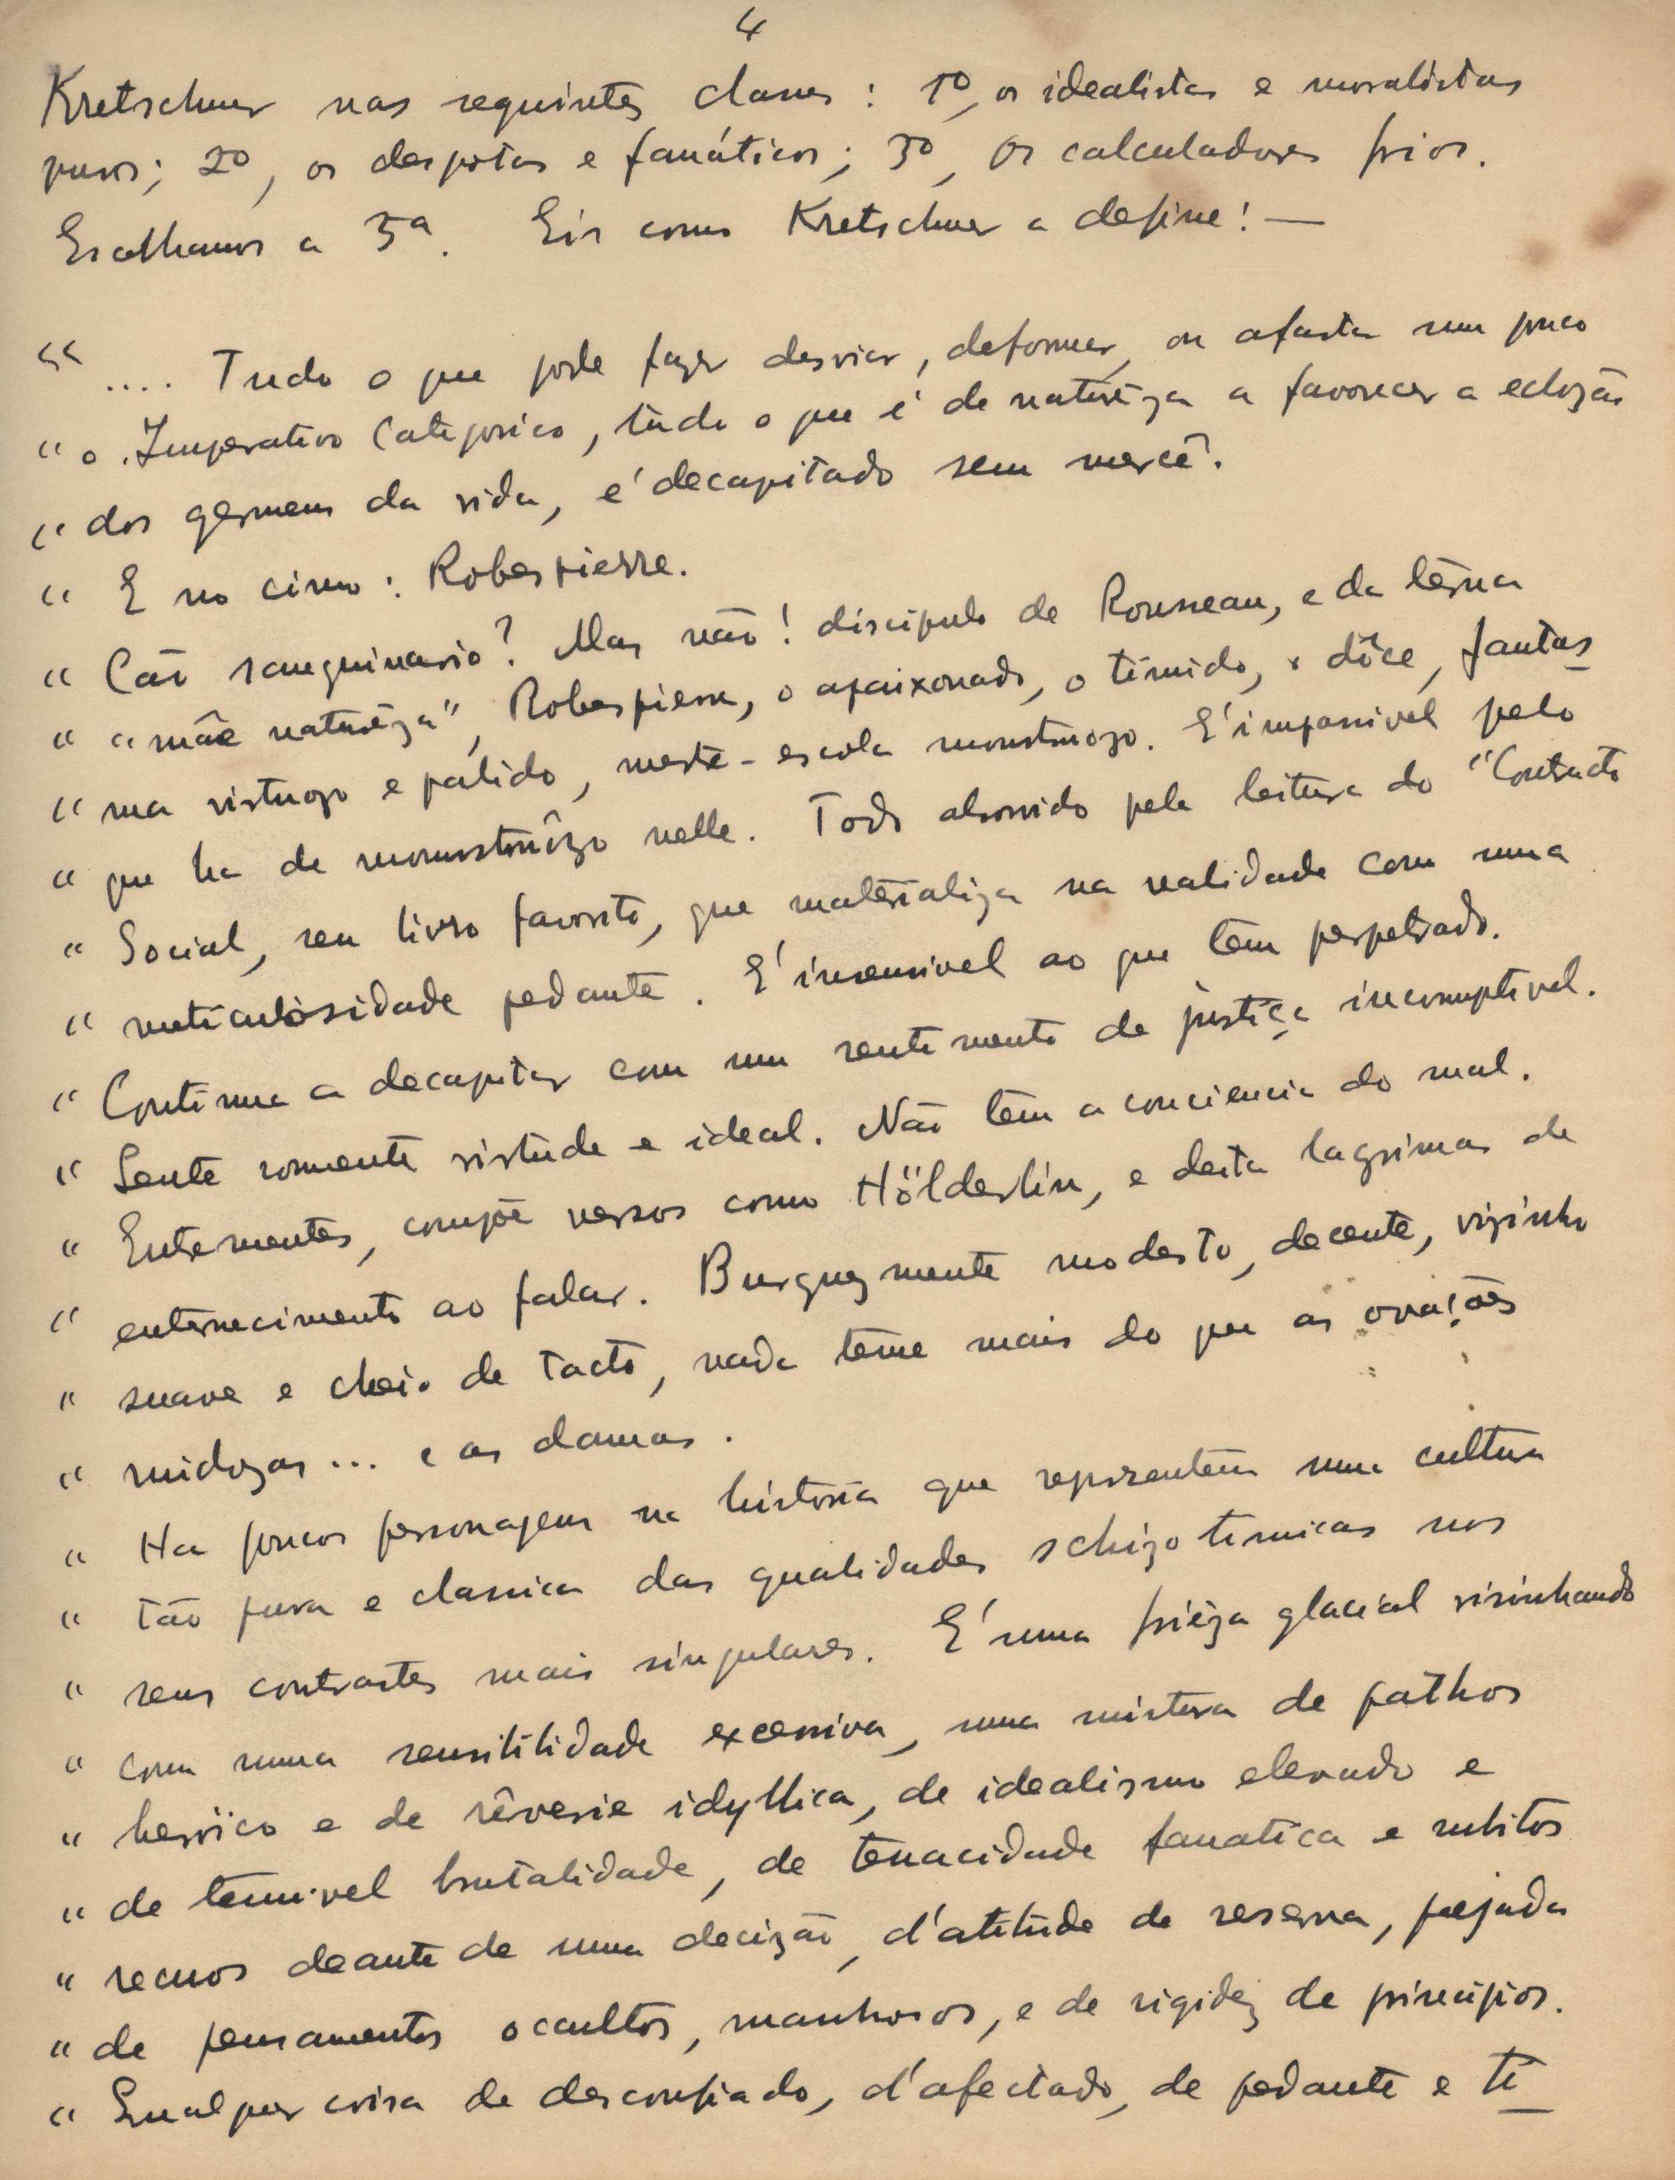 4
Kretschmer nas seguintes classes : 1º, os idealistas e moralistas
puros; 2º, os despotas e fanáticos; 3º, os calculadores frios.
Escolhamos a 3ª. Eis como Kretschmer a define: —
" .... Tudo o que pode fazer desviar, deformar, ou afastar um pouco
" o Imperativo Categorico, tudo o que é de naturêza a favorecer a eclozão
" dos germens da vida, é decapitado sem mercê.
" E no cimo : Robespierre.
" Cão sanguinario? Mas não! discipulo de Rousseau, e da terna
" "mãe naturêza", Robespierre, o apaixonado, o timido, o dôce, fantas
" ma virtuozo e palido, mestre-escola monstruozo. E' impassivel pelo
" que ha de monstruôzo nelle. Todo absorvido pela leitura do "Contracto
" Social, seu livro favorito, que materializa na realidade com uma
" meticulòsidade pedante. E' insensivel ao que tem perpetrado.
" Continua a decapitar com um sentimento de justiça incorruptivel.
" Sente somente virtude e ideal. Não tem a conciencia do mal.
" Entrementes, compõe versos como Hölderlin, e deita lagrimas de
" enternecimento ao falar. Burguezmente modesto, decente, vizinho
" suave e cheio de tacto, nada teme mais do que as ovações
" ruidozas ... e as damas.
" Ha poucos personagens na historia que reprezentem uma cultura
" tão pura e classica das qualidades schizotimicas nos
" seus contrastes mais singulares. E' uma friêza glacial visinhando
" com uma sensibilidade excessiva, uma mistura de pathos
" heroïco e de rêverie idyllica, de idealismo elevado e
" de temivel brutalidade, de tenacidade fanatica e subitos
" recuos deante de uma decizão, d'atitude de reserva, pejada
" de pensamentos occultos, manhosos, e de rigidez de principios.
" Qualquer coisa de desconfiado, d'afectado, de pedante e ti